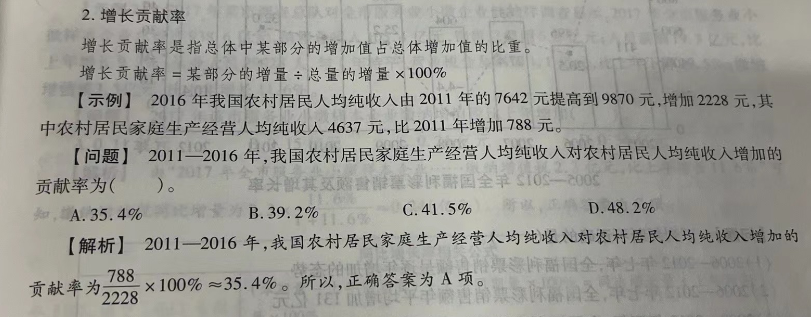 2. 增长贡献率
增长贡献率是指总体中某部分的增加值占总体增加值的比重。
增长贡献率=某部分的增量÷总量的增量×100%
【示例】 2016 年我国农村居民人均纯收入由 2011 年的 7642 元提高到 9870 元,增加 2228 元,其
中农村居民家庭生产经营人均纯收入 4637 元,比 2011 年增加 788 元。
【问题】 2011—2016 年,我国农村居民家庭生产经营人均纯收入对农村居民人均纯收入增加的
贡献率为( )。
A. 35. 4% B. 39. 2% C. 41. 5% D. 48. 2%
【解析】 2011—2016 年,我国农村居民家庭生产经营人均纯收入对农村居民人均纯收入增加的
贡献率为788/2228×100%≈35.4%。所以,正确答案为 A 项。